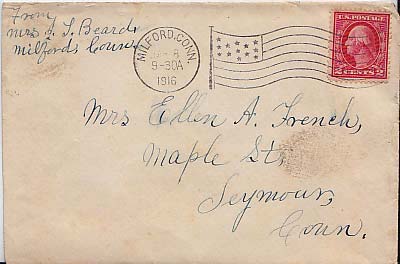 From
Mrs S. L. Beard,
Milford Conn
MILFORD, CONN.
8
9-30A
1916
U.S. POSTAGE
2 CENTS 2
Mrs Ellen A. French,
Maple St,
Seymour,
Conn.